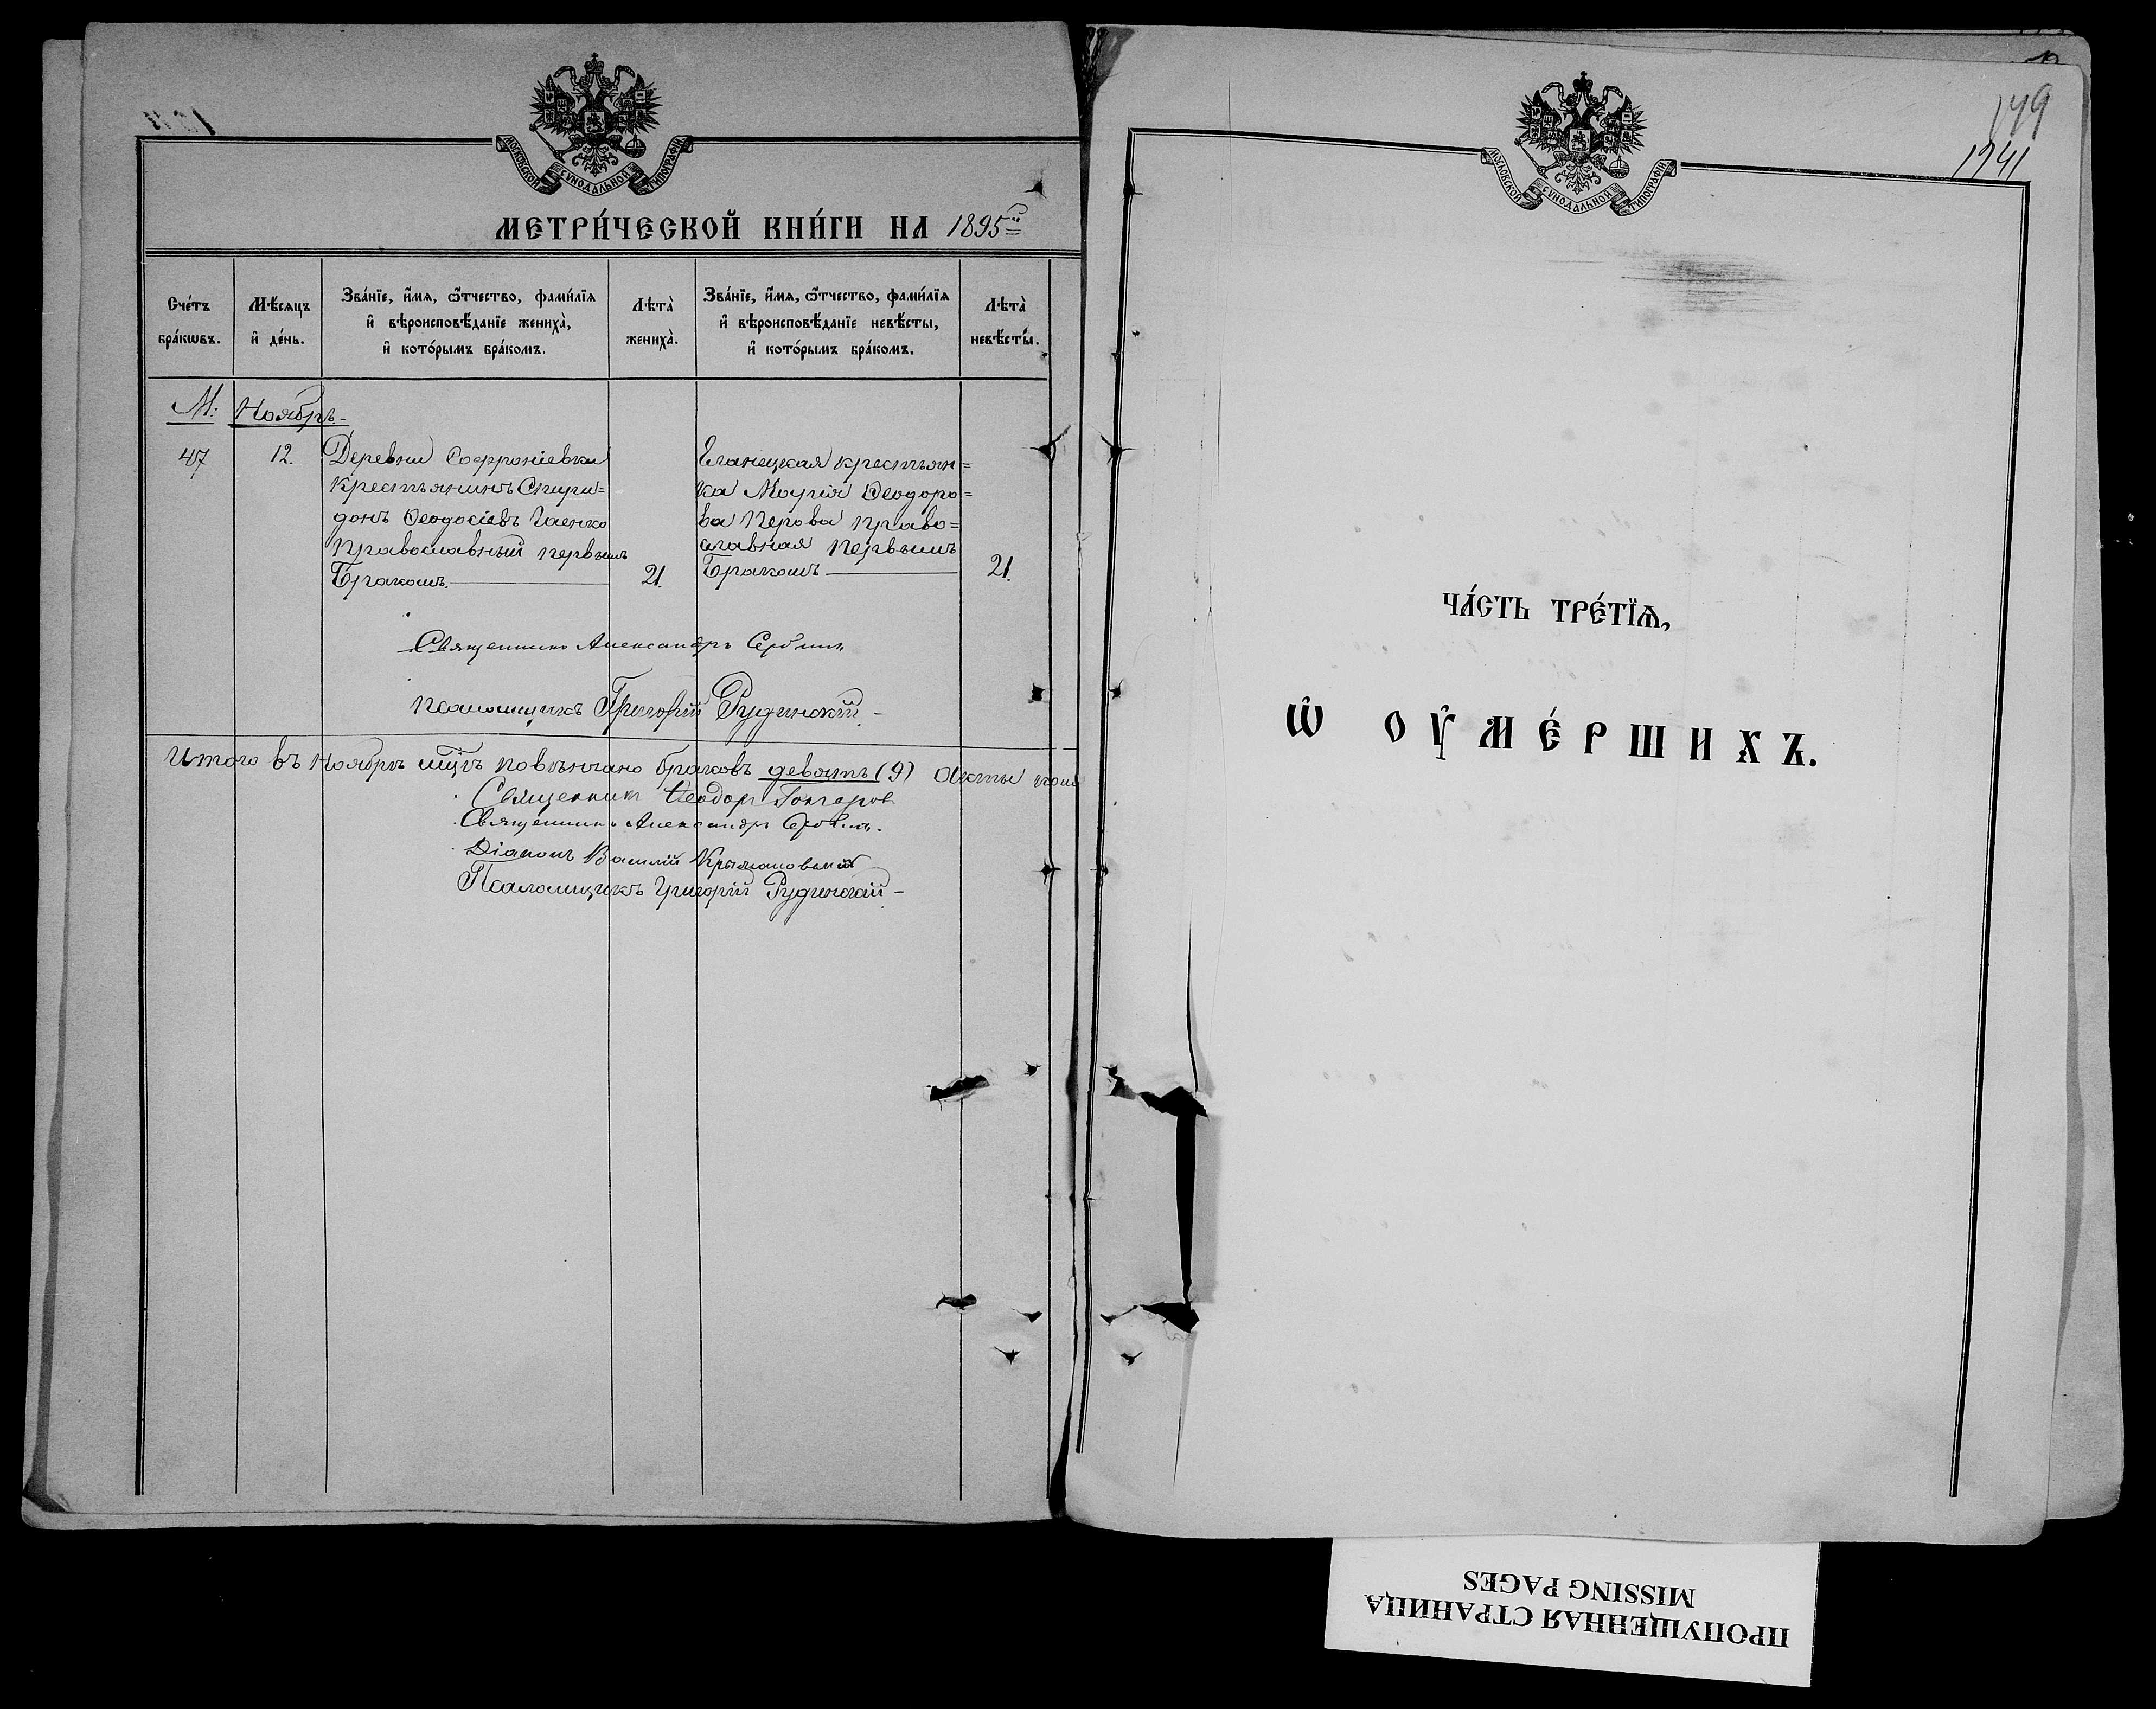 МОСКОВСКОЙ СѴНОДАЛЬНОЙ ТИПОГРАФІИ
МЕТРИ́ЧЕСКОЙ КНИ́ГИ НА 1895й
Сче́тъ бра́кѡвъ.
Мѣ́сяцъ и҆ де́нь.
Зва́нїе, и҆́мѧ, ѻ҆́тчество, фами́лїѧ
и҆ вѣроисповѣ́данїе жениха̀,
и҆ кото́рымъ бра́комъ.
Лѣта̀ жениха̀.
Зва́нїе, и҆́мѧ, ѻ҆́тчество, фами́лїѧ
и҆ вѣроисповѣ́данїе невѣ́сты,
и҆ кото́рымъ бра́комъ.
Лѣта̀ невѣ́сты.
М: Ноябрь
47
12.
Деревни Софроніевки
крестьянинъ Спири=
донъ Ѳеодосіевъ Гаенко
православный первымъ
бракомъ.
21.
Еланецкая крестьян=
ка Марія Ѳеодоро=
ва Перова право=
славная первымъ
бракомъ
21.
Священникъ Александръ Сербин
Псаломщикъ Григорій Рудинскій
Итого въ Ноябрѣ мцѣ повѣнчано браковъ девять (9) Акты
Священникъ Ѳеодоръ Гончаровъ
Священникъ Александръ Сербин.
Діаконъ Василій Крыжановскій
Псаломщикъ Григорій Рудинскій
149
1241
МОСКОВСКОЙ СѴНОДАЛЬНОЙ ТИПОГРАФІИ
ЧА́СТЬ ТРЕ́ТЇѦ,
Ѡ҆ ОУ҆МЕ́РШИХЪ.
ПРОПУЩЕННАЯ СТРАНИЦА
MISSING PAGES